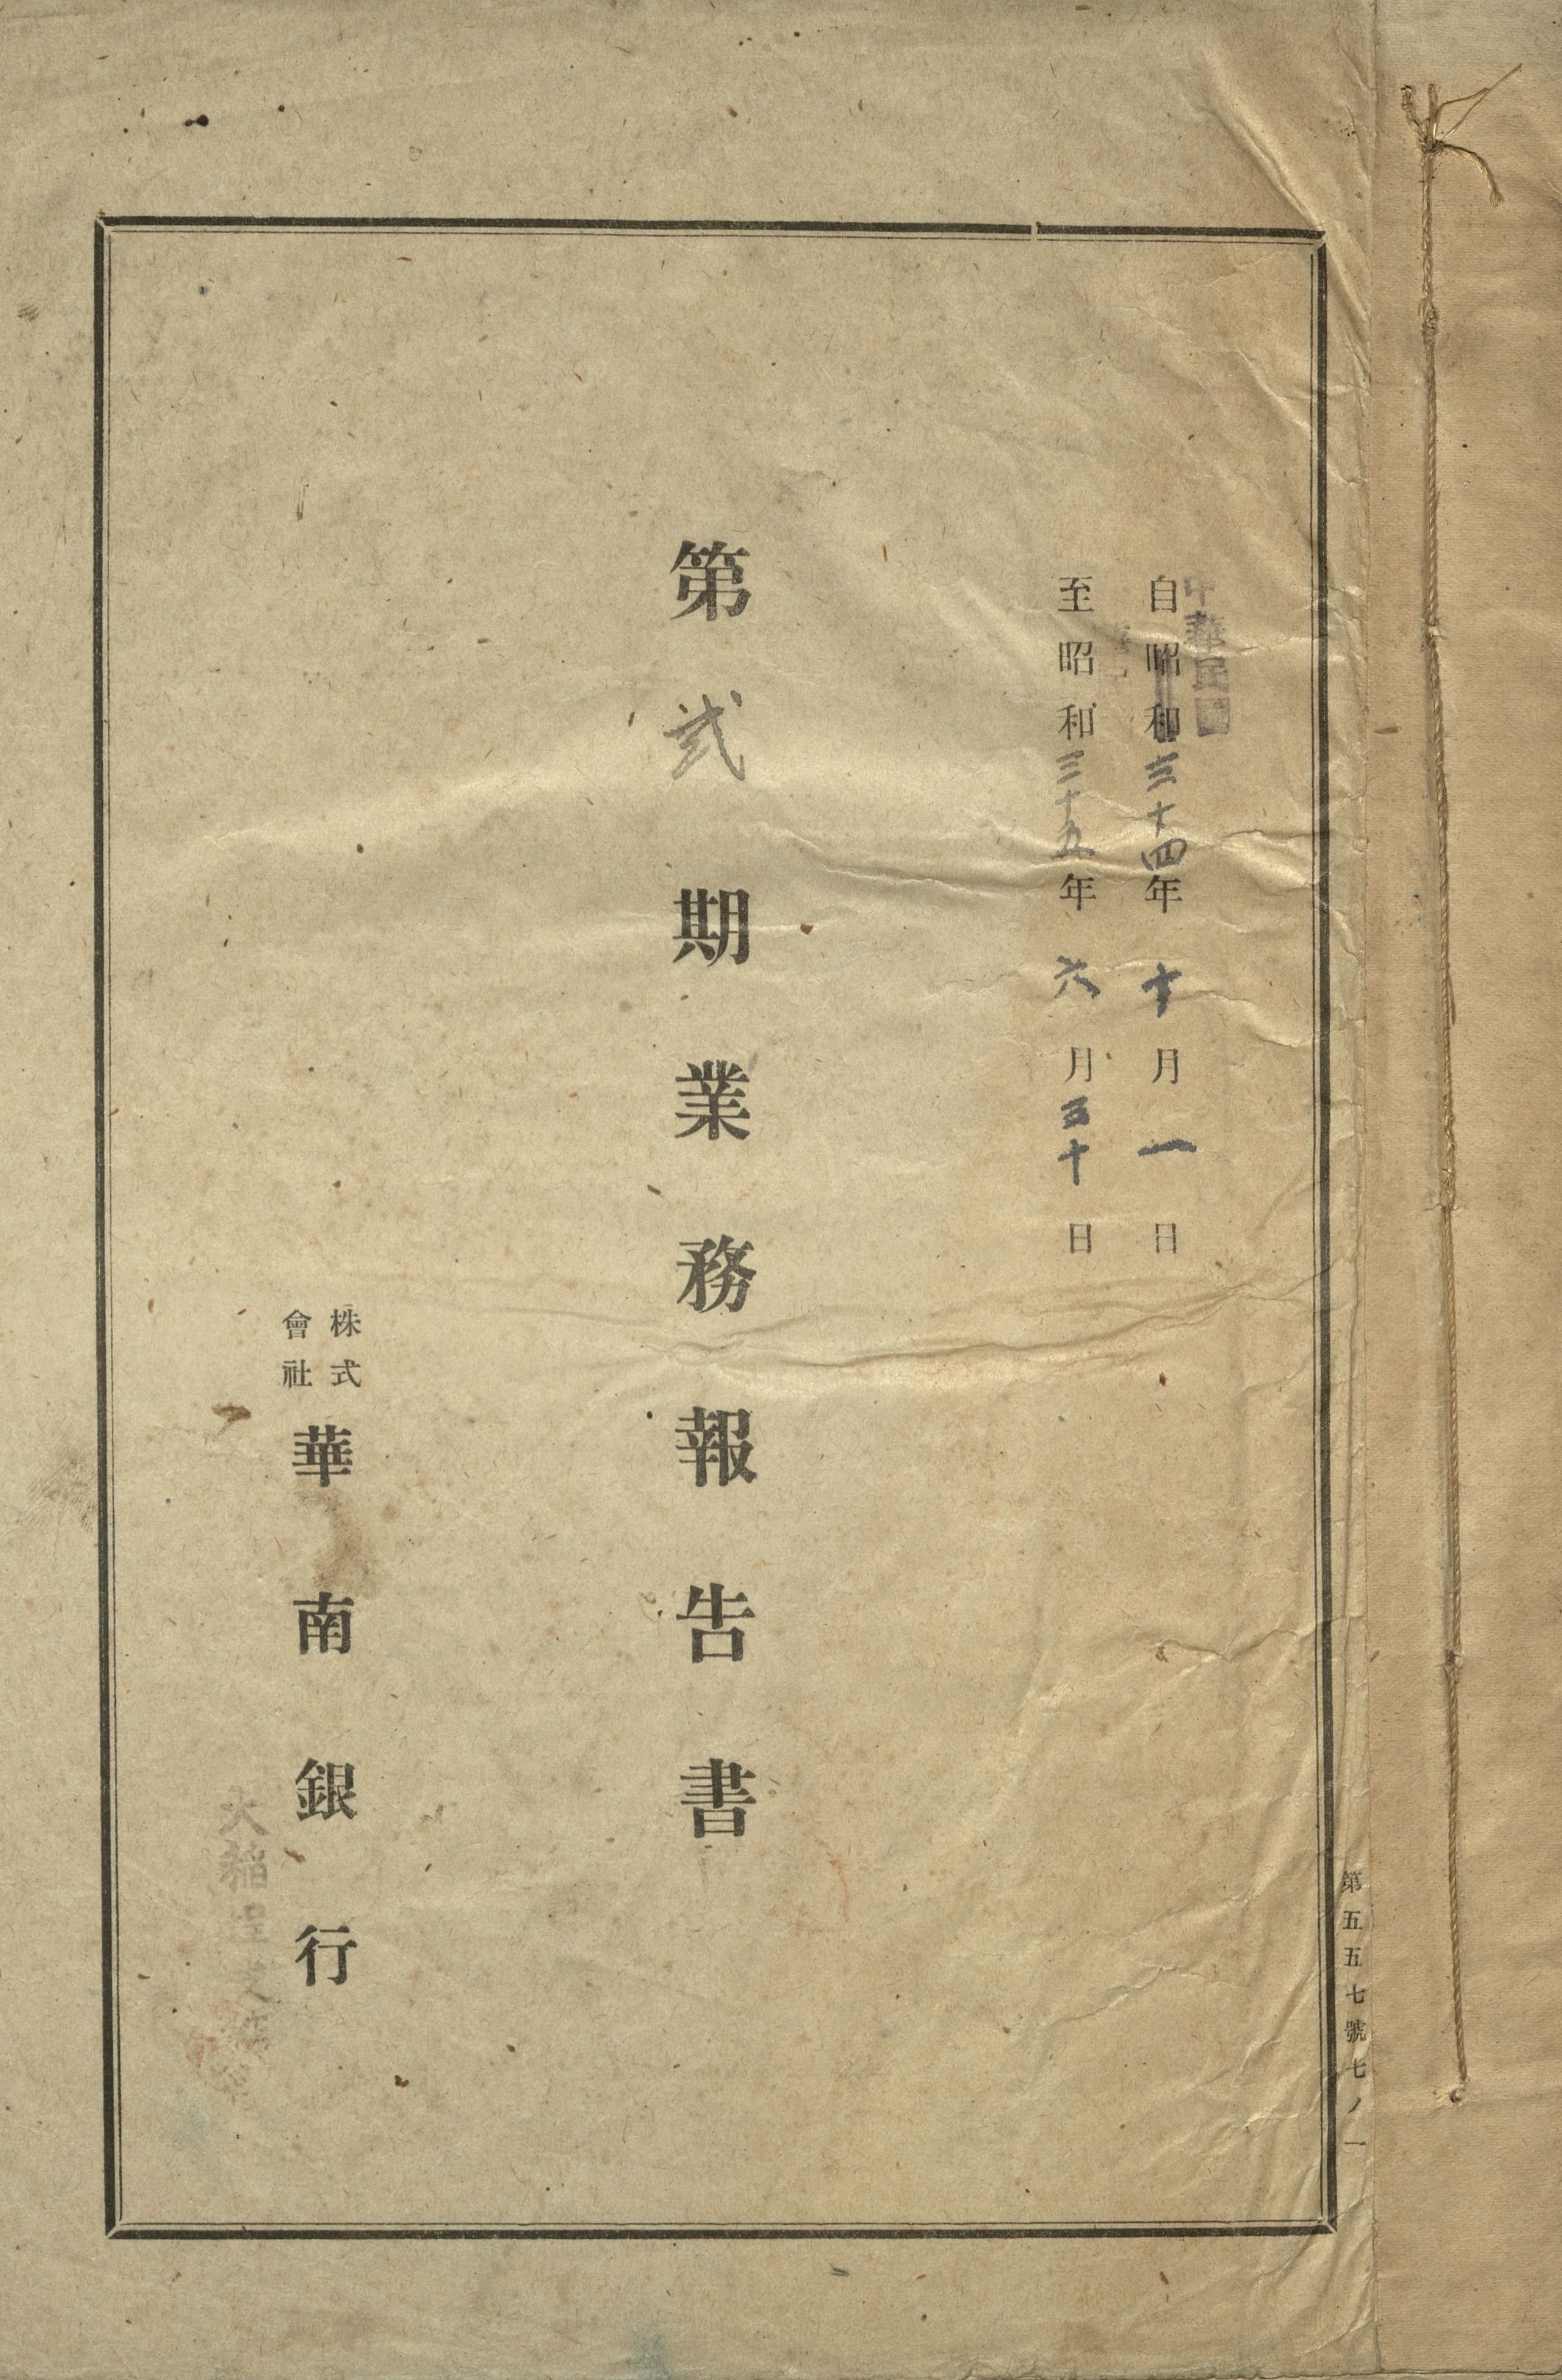 第五五七號七ノ一
中華民國
自昭和三十四年十月一日
至昭和三十五年六月三十日
第弐期業務報告書
株式會社華南銀行
大稻埕支店